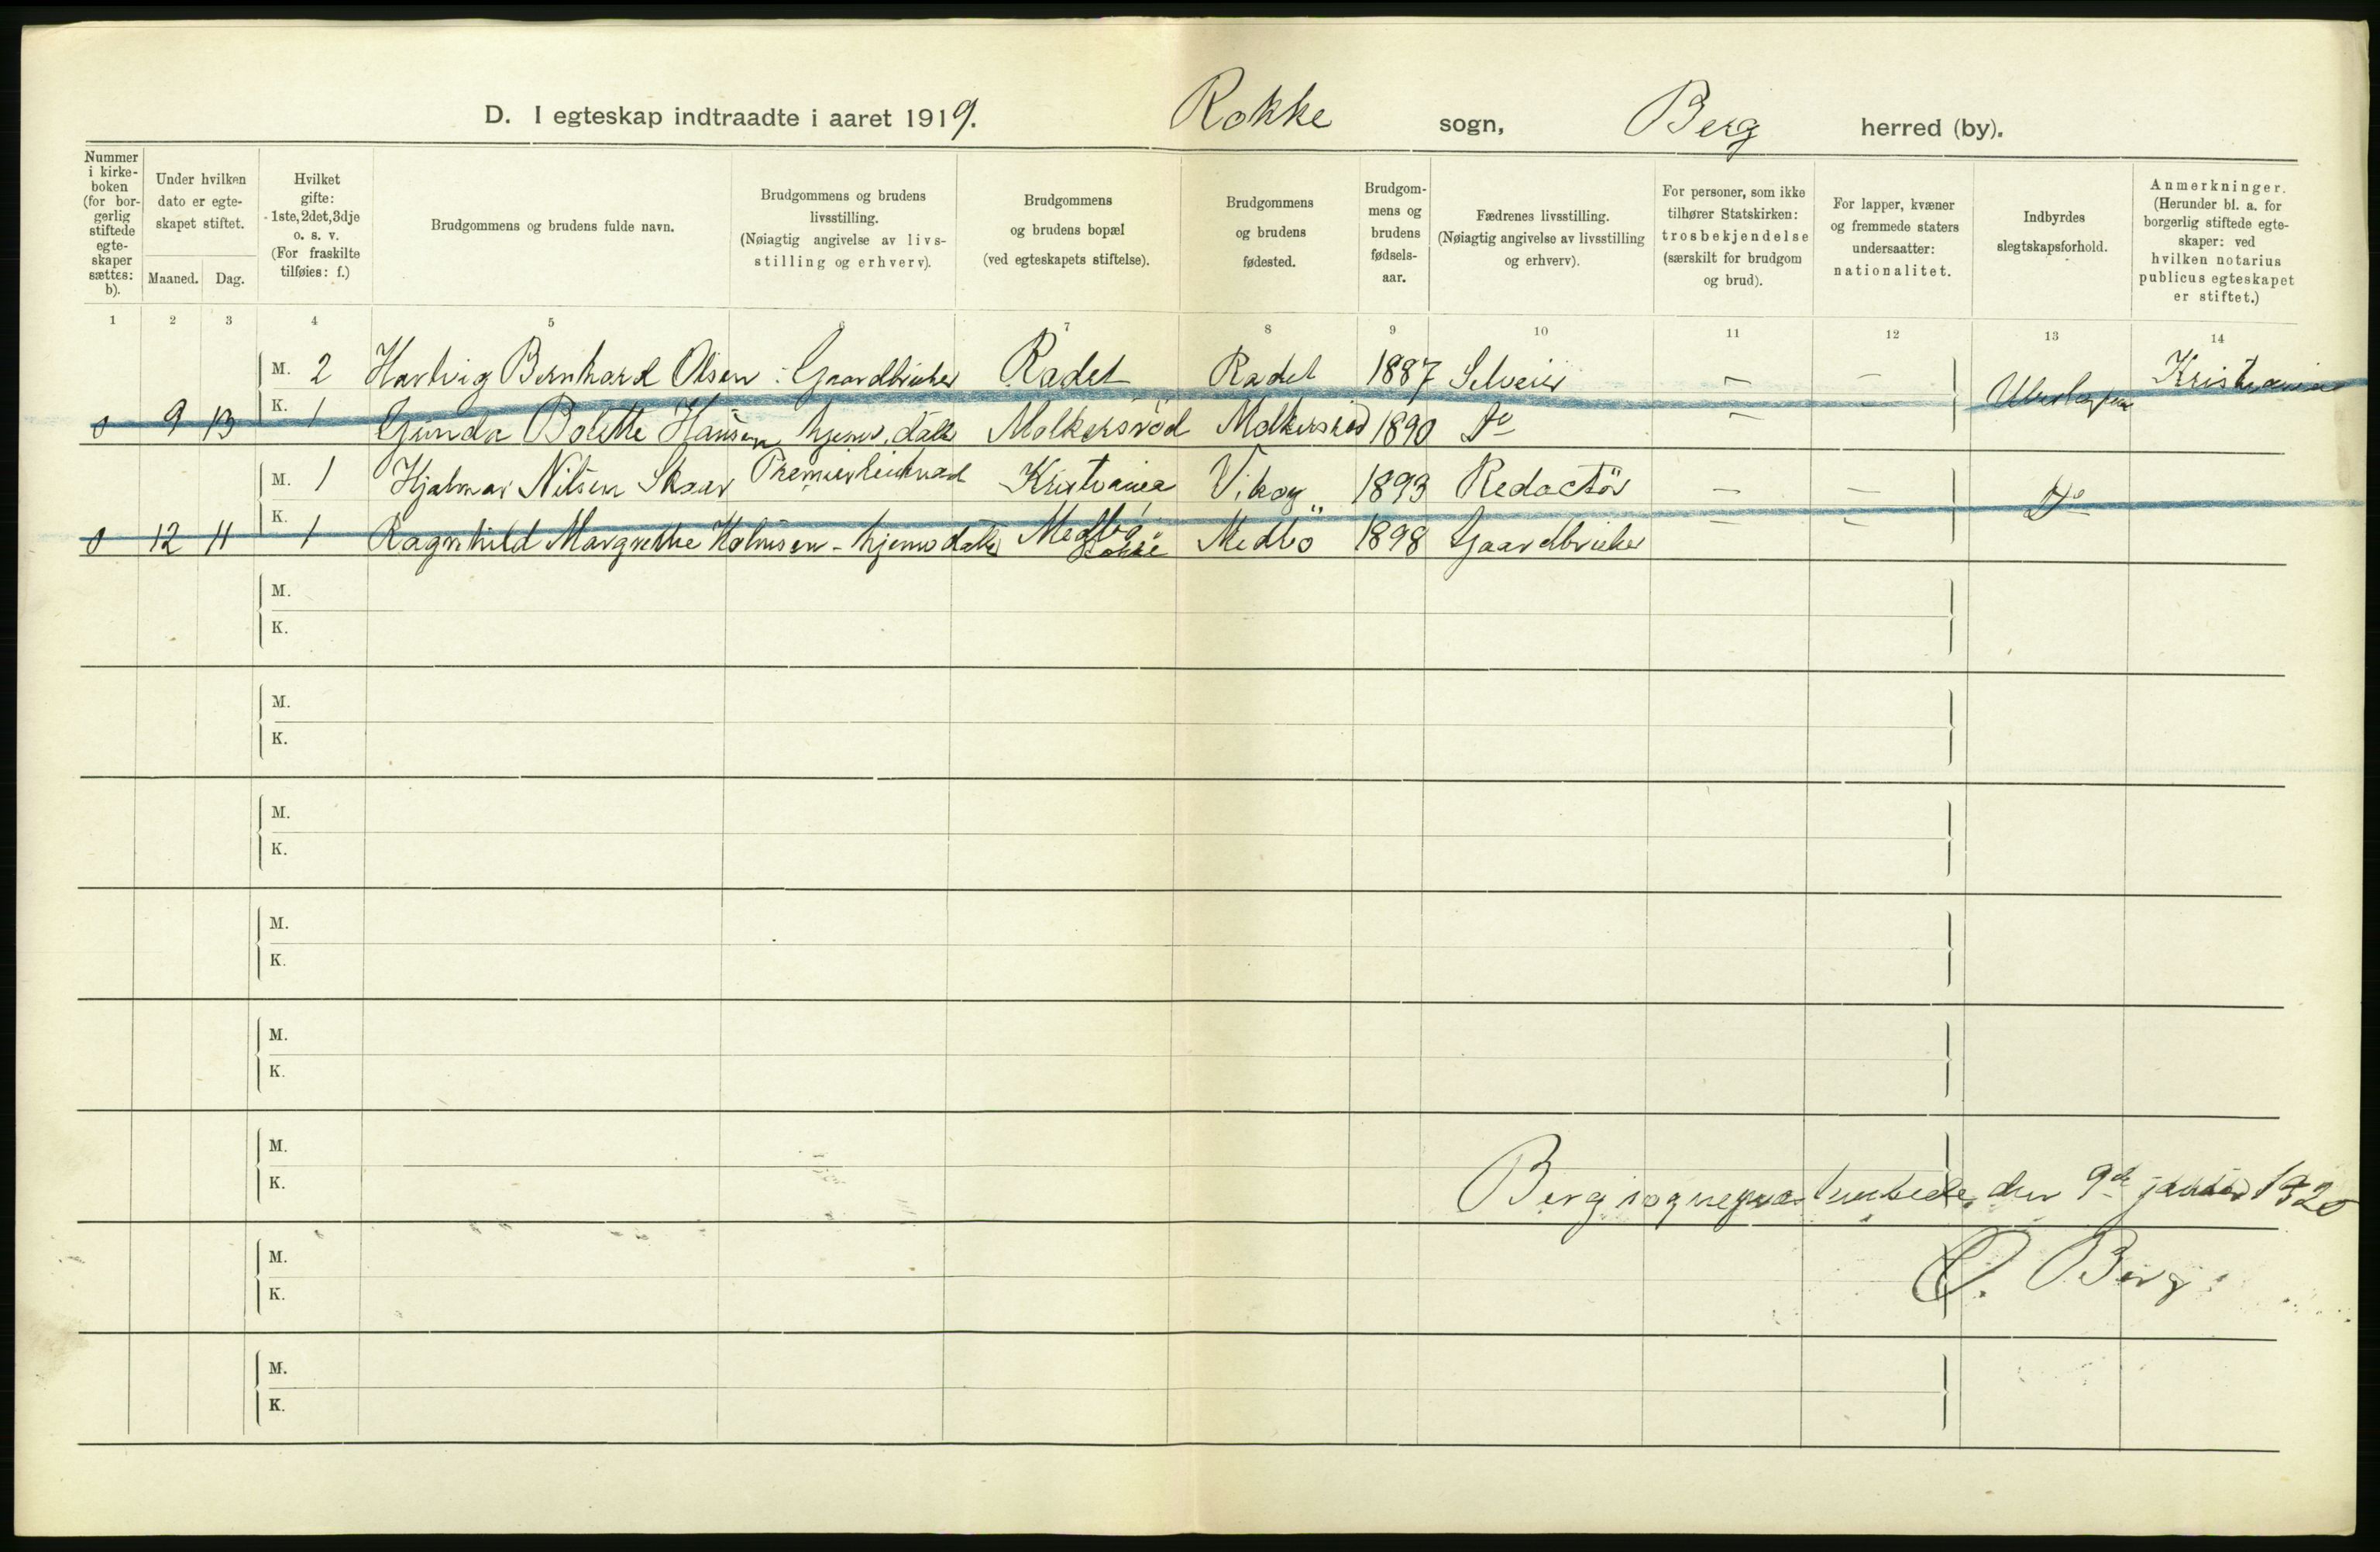 D. I egteskap indtraadte i aaret 1919. Rokke sogn, Berg herred (by).
Nummer i kirke-boken (for bor-gerlig stiftede egte-skaper sættes: b).
Under hvilken dato er egte-skapet stiftet.
Maaned. Dag.
Hvilket gifte: 1ste, 2det, 3dje o. s. v. (For fraskilte tilføies: f.)
Brudgommens og brudens fulde navn.
Brudgommens og brudens livsstilling. (Nøiagtig angivelse av livs-stilling og erhverv).
Brudgommens og brudens bopæl (ved egteskapets stiftelse).
Brudgommens og brudens fødested.
Brudgom-mens og brudens fødsels-aar.
Fædrenes livsstilling. (Nøiagtig angivelse av livsstilling og erhverv).
For personer, som ikke tilhører Statskirken: trosbekjendelse (særskilt for brudgom og brud).
For lapper, kvæner og fremmede staters undersaatter: nationalitet.
Indbyrdes slegtskapsforhold.
Anmerkninger. (Herunder bl. a. for borgerlig stiftede egte-skaper: ved hvilken notarius publicus egteskapet er stiftet.)
1 2 3 4 5 6 7 8 9 10 11 12 13 14
M. 2 Hartvig Bernhard Olsen - Gaardbruker Radet Radet 1887 Selveier — — Kristiania
0 9 13 K. 1 Gunda Bolette Hansen hjemv. datter Molkersröd Molkersröd 1890 Do —
M. 1 Hjalmar Nilsen Skaar Premierleutnad Kristiania Vikøy 1893 Redactör — — Do
0 12 11 K. 1 Ragnhild Margrethe Holmsen - hjemv datter Medbö Rokke Medbö 1898 Gaardbruker — —
M.
K.
M.
K.
M.
K.
M.
K.
M.
K.
M.
K.
Berg sogneprestembede, den 9de januar 1920
M.
K.
O. Berg.
M.
K.